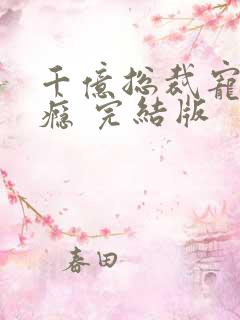 千億总裁寵
癮 完結版
春田